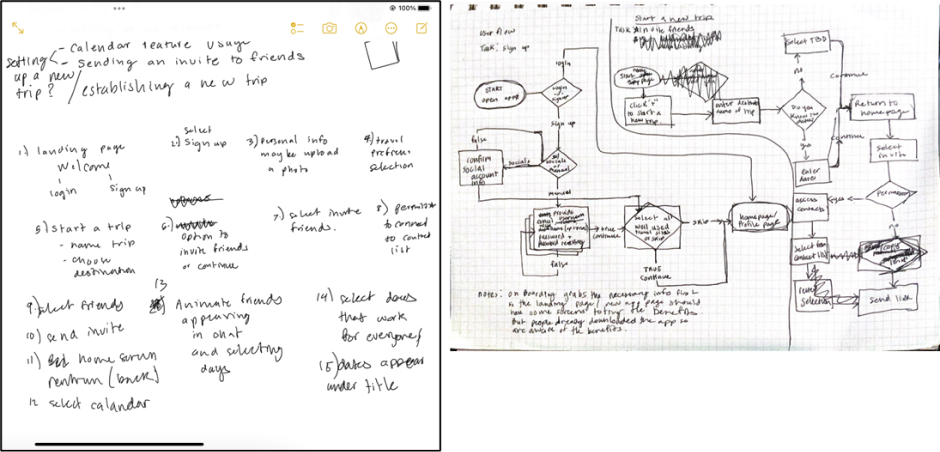 100%
- Calendar feature usage
setting - Sending an invite to friends
up a new
trip? / establishing a new trip
1) landing page
Welcome
login
Sign up
2) Select
Sign up
3) Personal info
maybe upload
a photo
4) travel
preferences
selection
5) Start a trip
- name trip
- choose
destination
6)
option to
invite friends
or continue
7) select invite
friends.
8) permission
to connect
to contact
list
9) Select friends
10) send invite
11) home screen
(back)
12 select calandar
13
Animate friends
appearing
in chat
and selecting
days
14) select dates
that work
for everyone/
15) dates appear
under title
User flow
Task: sign up
START
open app
login
Login
or
signup
sign up
socials
or
manual
socials
false
confirm
social
account
info
manual
provide
password +
false
true
continue
Select all
most used
travel sites
or skip
skip
TRUE
continue
homepage/
Profile page
Start a new trip
Task: invite friends
Start
page
click "+"
to start a
new trip
enter
name of trip
Do you
know the
dates
no
Select TBD
continue
yes
enter
dates
continue
Return to
homepage
select
invite
Permission
yes
access
contacts
select from
contact list
selection
no
copy
link
send link
Notes: on boarding grabs the necessary info first
the landing page/ new app page should
has some screens the benefits
But people already downloaded the app so
are aware of the benefits.